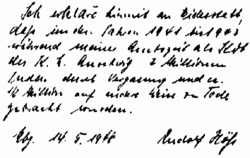 Ich erkläre hiermit an Eidesstatt
daß in den Jahren 1941 bis 1943
während meiner Amtszeit als Kdt.
des K. L. Auschwitz 2 Millionen
Juden durch Vergasung und ca.
½ Million auf andere Weise zu Tode
gebracht wurden.
14. 5. 1946 Rudolf Höß